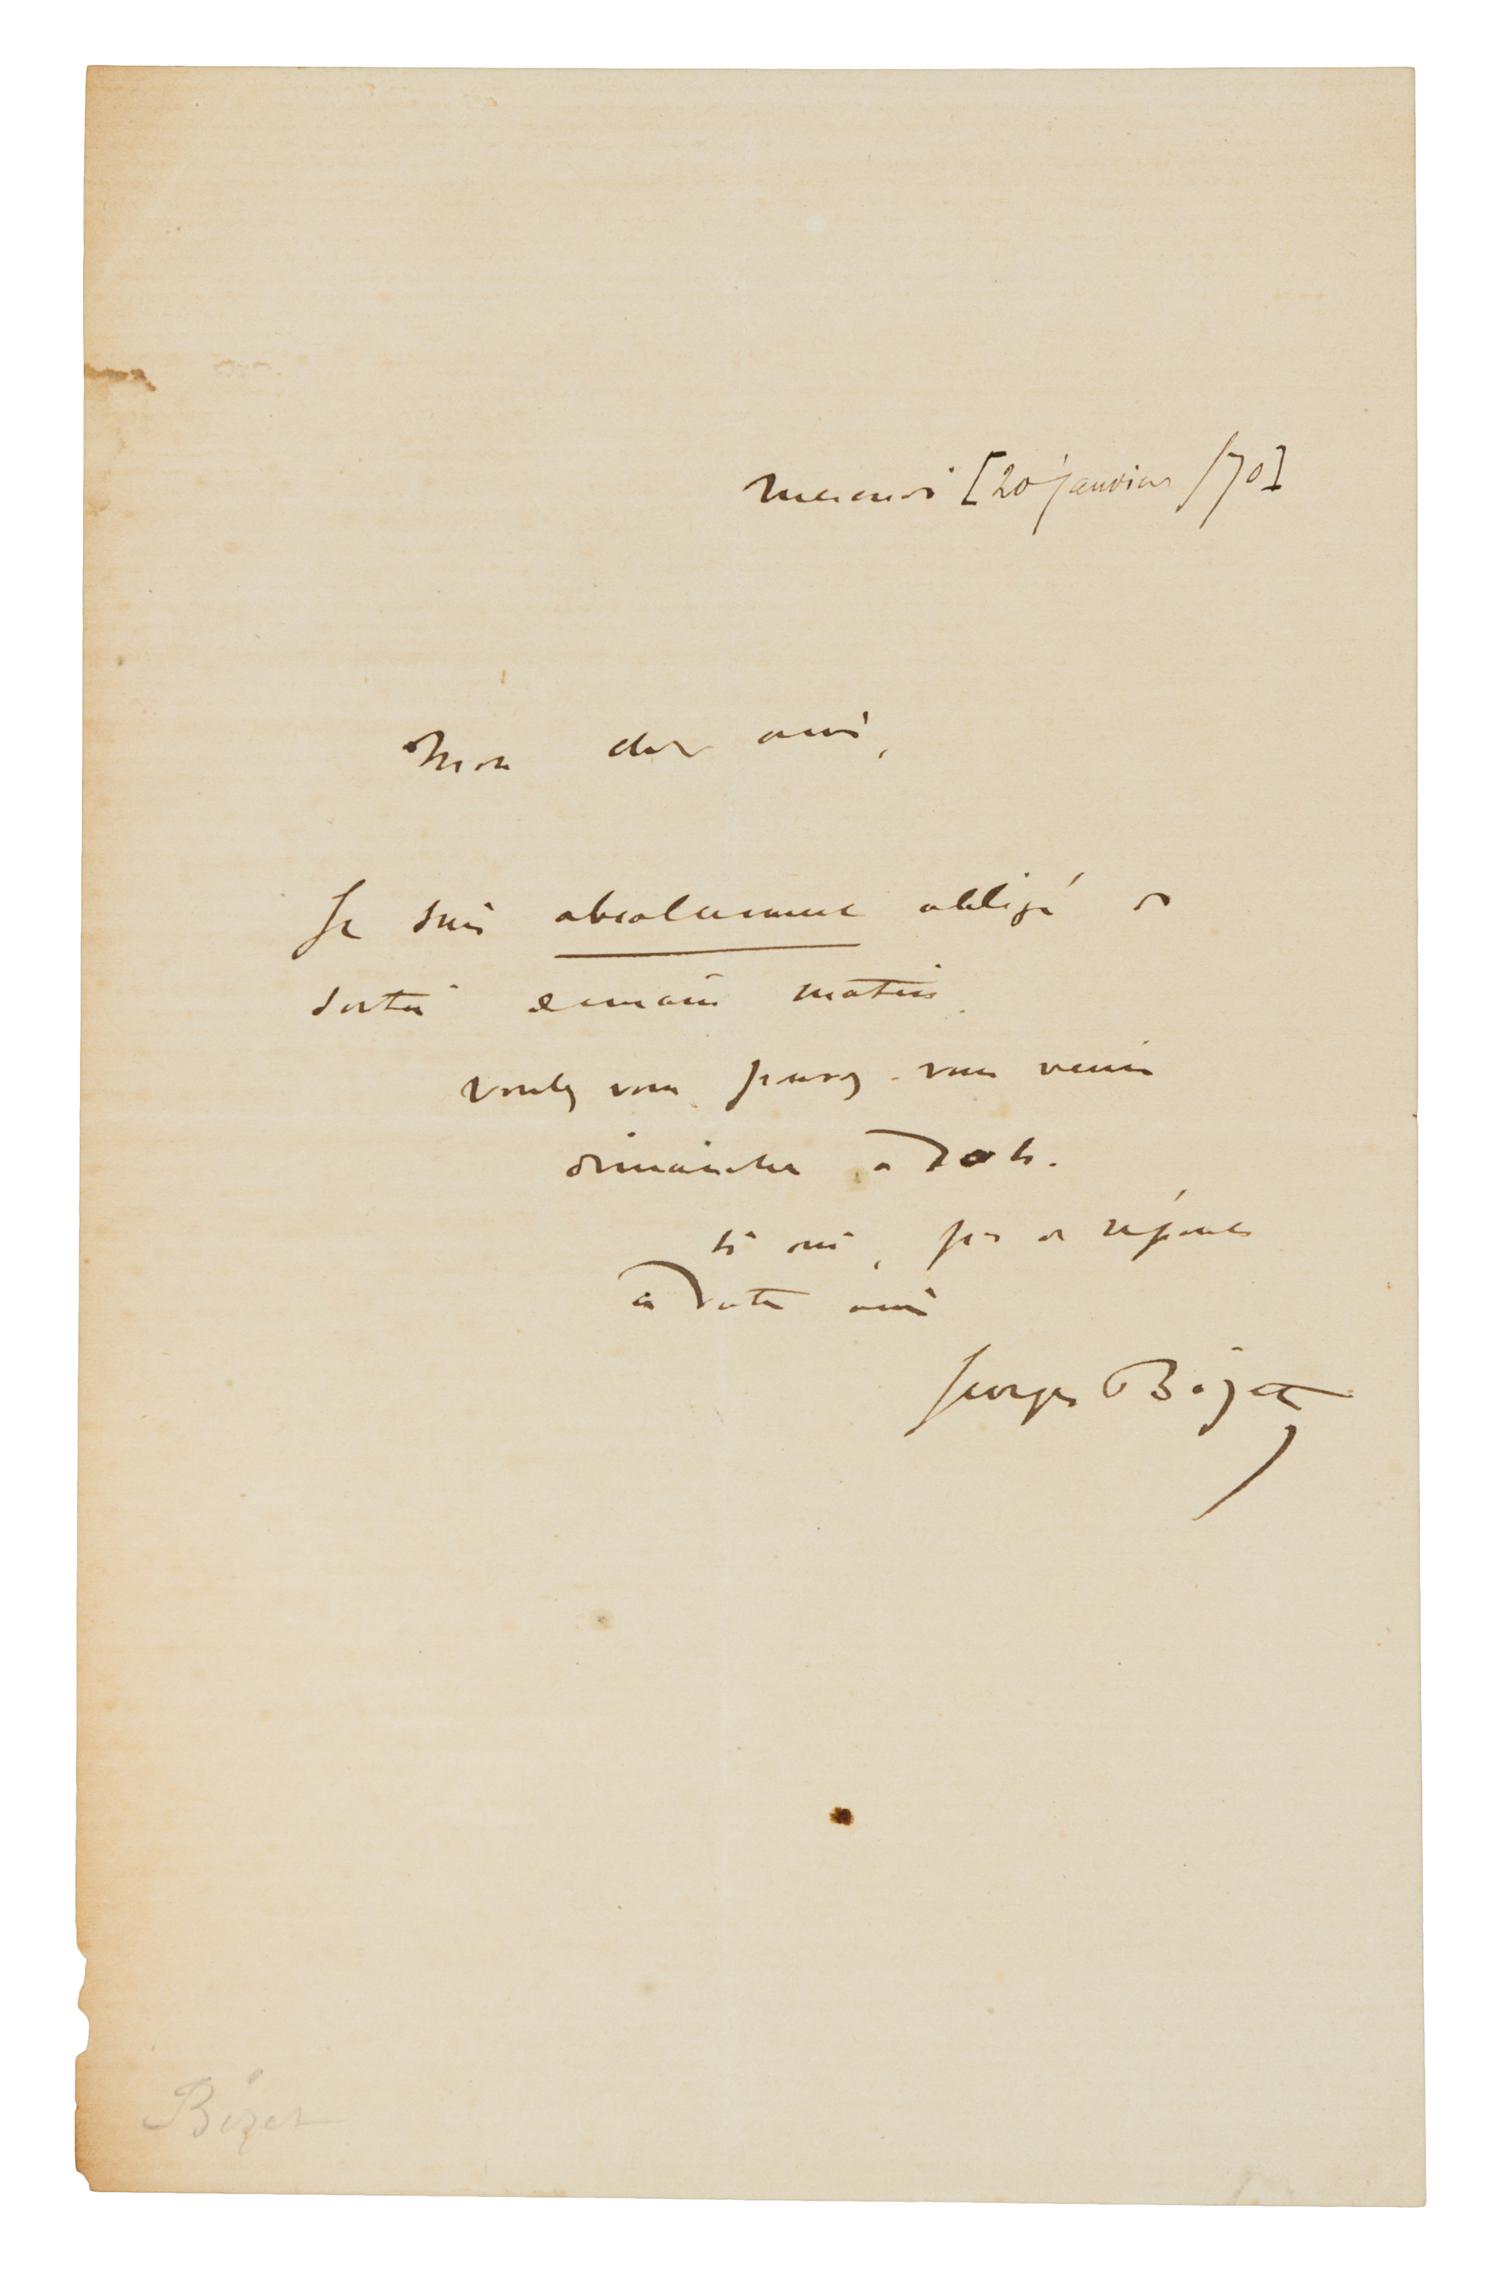 mercredi [20 janvier /70]
Mon cher ami,
Je suis absolument obligé de
sortir demain matin.
voulez vous pouvez-vous venir
dimanche à 10 h.
si oui, pas de réponse
à votre ami
Georges Bizet
Bizet